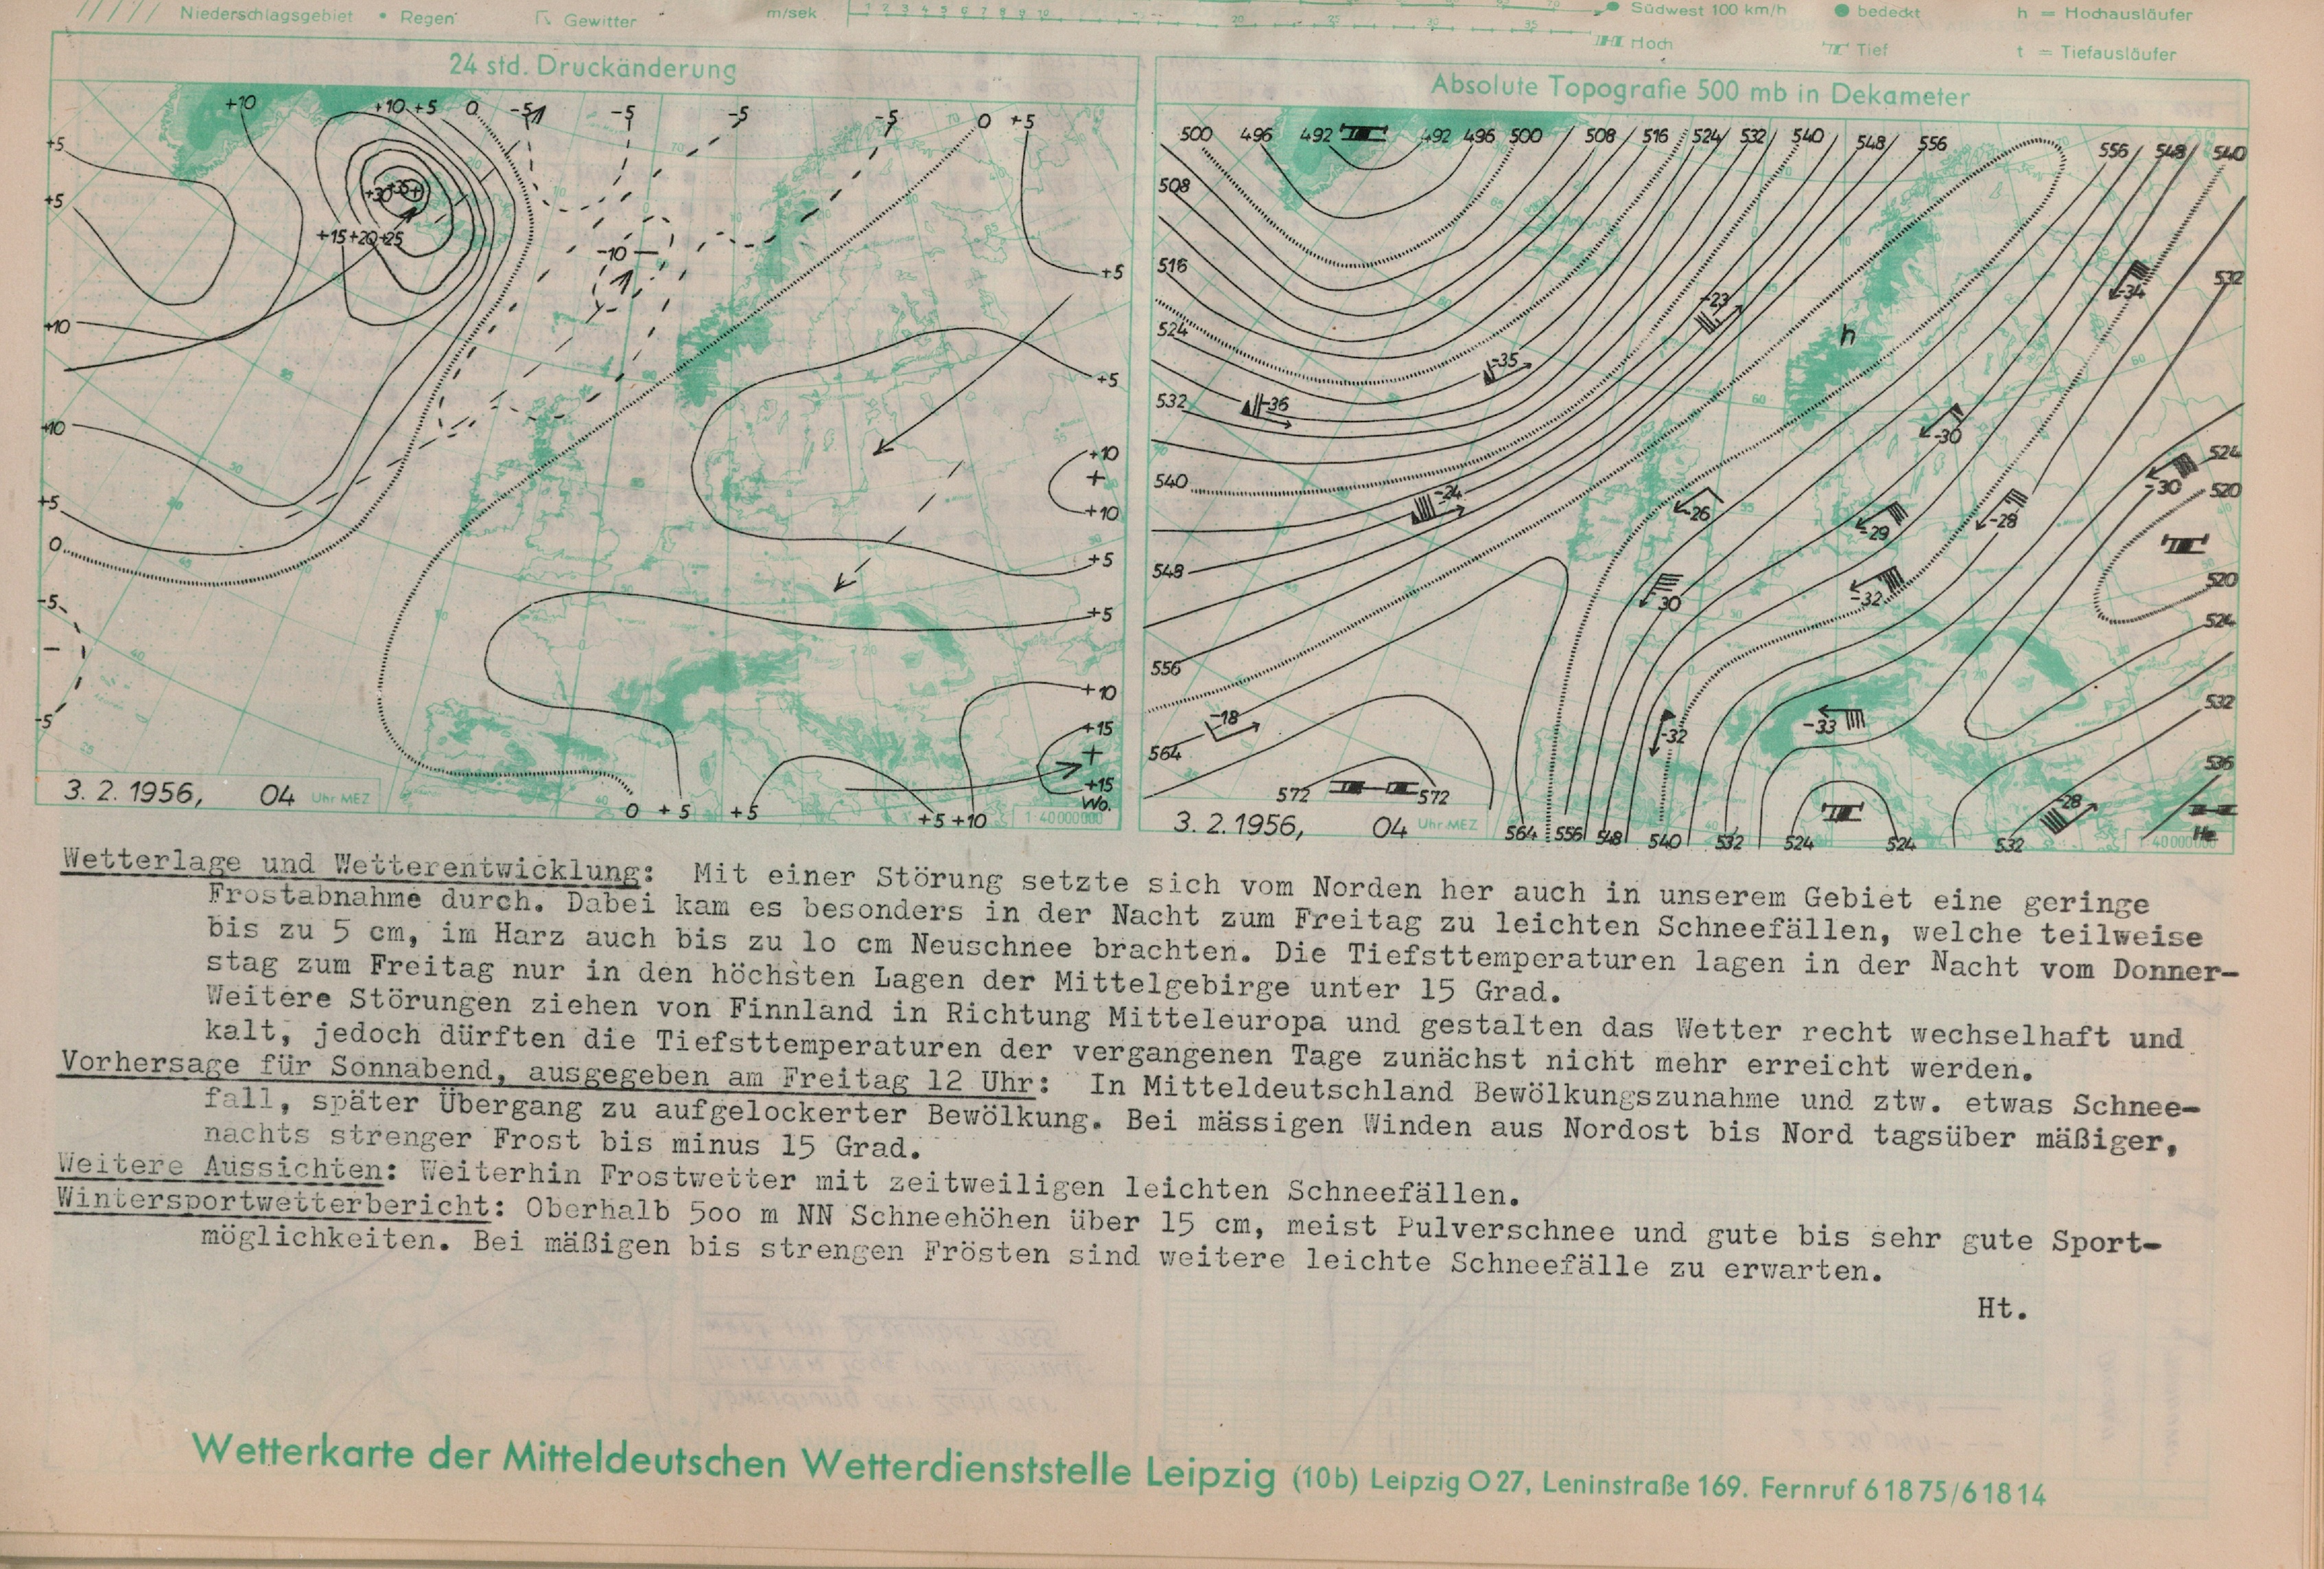 Niederschlagsgebiet • Regen Gewitter m/sek 1 2 3 4 5 6 7 8 9 10 20 25 30 35 Südwest 100 km/h bedeckt h = Hochausläufer
Hoch Tief t = Tiefausläufer
24 std. Druckänderung
+10 +10 +5 0 -5 -5 -5 -5 0 +5
+5
+30 +35+
+5
+15 +20 +25
-10
+5
+10
+5
+10
+10
+
+5
+10
0
+5
-5
+5
-
+10
-5
+15
+
+15
3. 2. 1956, 04 Uhr MEZ
Wo.
0 +5 +5 +5 +10
1:40000000
Absolute Topografie 500 mb in Dekameter
500 496 492 492 496 500 508 516 524 532 540 548 556 556 548 540
508
516
-34
532
-23
524
h
-35
532
-36
-30
524
540
-24
-30
520
-26
-28
-29
548
520
-30
-32
524
556
532
-18
-32
-33
564
536
572 572
-28
3. 2. 1956, 04 Uhr MEZ
564 556 548 540 532 524 524 532
He.
1:40000000
Wetterlage und Wetterentwicklung: Mit einer Störung setzte sich vom Norden her auch in unserem Gebiet eine geringe
Frostabnahme durch. Dabei kam es besonders in der Nacht zum Freitag zu leichten Schneefällen, welche teilweise
bis zu 5 cm, im Harz auch bis zu lo cm Neuschnee brachten. Die Tiefsttemperaturen lagen in der Nacht vom Donner-
stag zum Freitag nur in den höchsten Lagen der Mittelgebirge unter 15 Grad.
Weitere Störungen ziehen von Finnland in Richtung Mitteleuropa und gestalten das Wetter recht wechselhaft und
kalt, jedoch dürften die Tiefsttemperaturen der vergangenen Tage zunächst nicht mehr erreicht werden.
Vorhersage für Sonnabend, ausgegeben am Freitag 12 Uhr: In Mitteldeutschland Bewölkungszunahme und ztw. etwas Schnee-
fall, später Übergang zu aufgelockerter Bewölkung. Bei mässigen Winden aus Nordost bis Nord tagsüber mäßiger,
nachts strenger Frost bis minus 15 Grad.
Weitere Aussichten: Weiterhin Frostwetter mit zeitweiligen leichten Schneefällen.
Wintersportwetterbericht: Oberhalb 5oo m NN Schneehöhen über 15 cm, meist Pulverschnee und gute bis sehr gute Sport-
möglichkeiten. Bei mäßigen bis strengen Frösten sind weitere leichte Schneefälle zu erwarten.
Ht.
Wetterkarte der Mitteldeutschen Wetterdienststelle Leipzig (10b) Leipzig O 27, Leninstraße 169. Fernruf 61875/61814